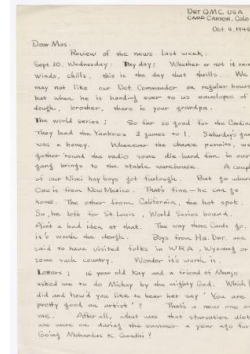 Det QMC, USA
Camp Carson, Colo
Oct. 4, 1942
Dear Mas:
Review of the news last week.
Sept 30. Wednesday: Pay day: Whether or not it rains
winds, chills, this is the day that thrills. We
may not like our Det Commander on regular hours
but when he is handing over to us envelopes of
dough, brother, there is your grandpa.
The World series: So far so good for the Cardinals
They lead the Yankees 2 games to 1. Saturday's game
was a honey. Whenever the chance permits, we
gather round the radio some die hard fan in our
gang brings to the stable warehouse. A couple
of our Nisei hey boys got furlough. But go where
One is from New Mexico. That's fine - he can go
home. The other from California, the hot spot.
So, he left for St Louis, World Series bound.
Ain't a bad idea at that. The way those Cards go.
It's worth the dough. Boys from the Det. are
said to have visited folks in WRA, Wyoming or
some such country. Wonder it's worth it.
Letters: 16 year old Kay and a friend of Margo
asked me to do Mickey by the mighty God. Which I
did and how'd you like to hear her say "You are
pretty good an artist"! That's a new one on
me. After all, what was that starvation diet
we were on during the summer a year ago for
Going Mohandas K. Gandhi!